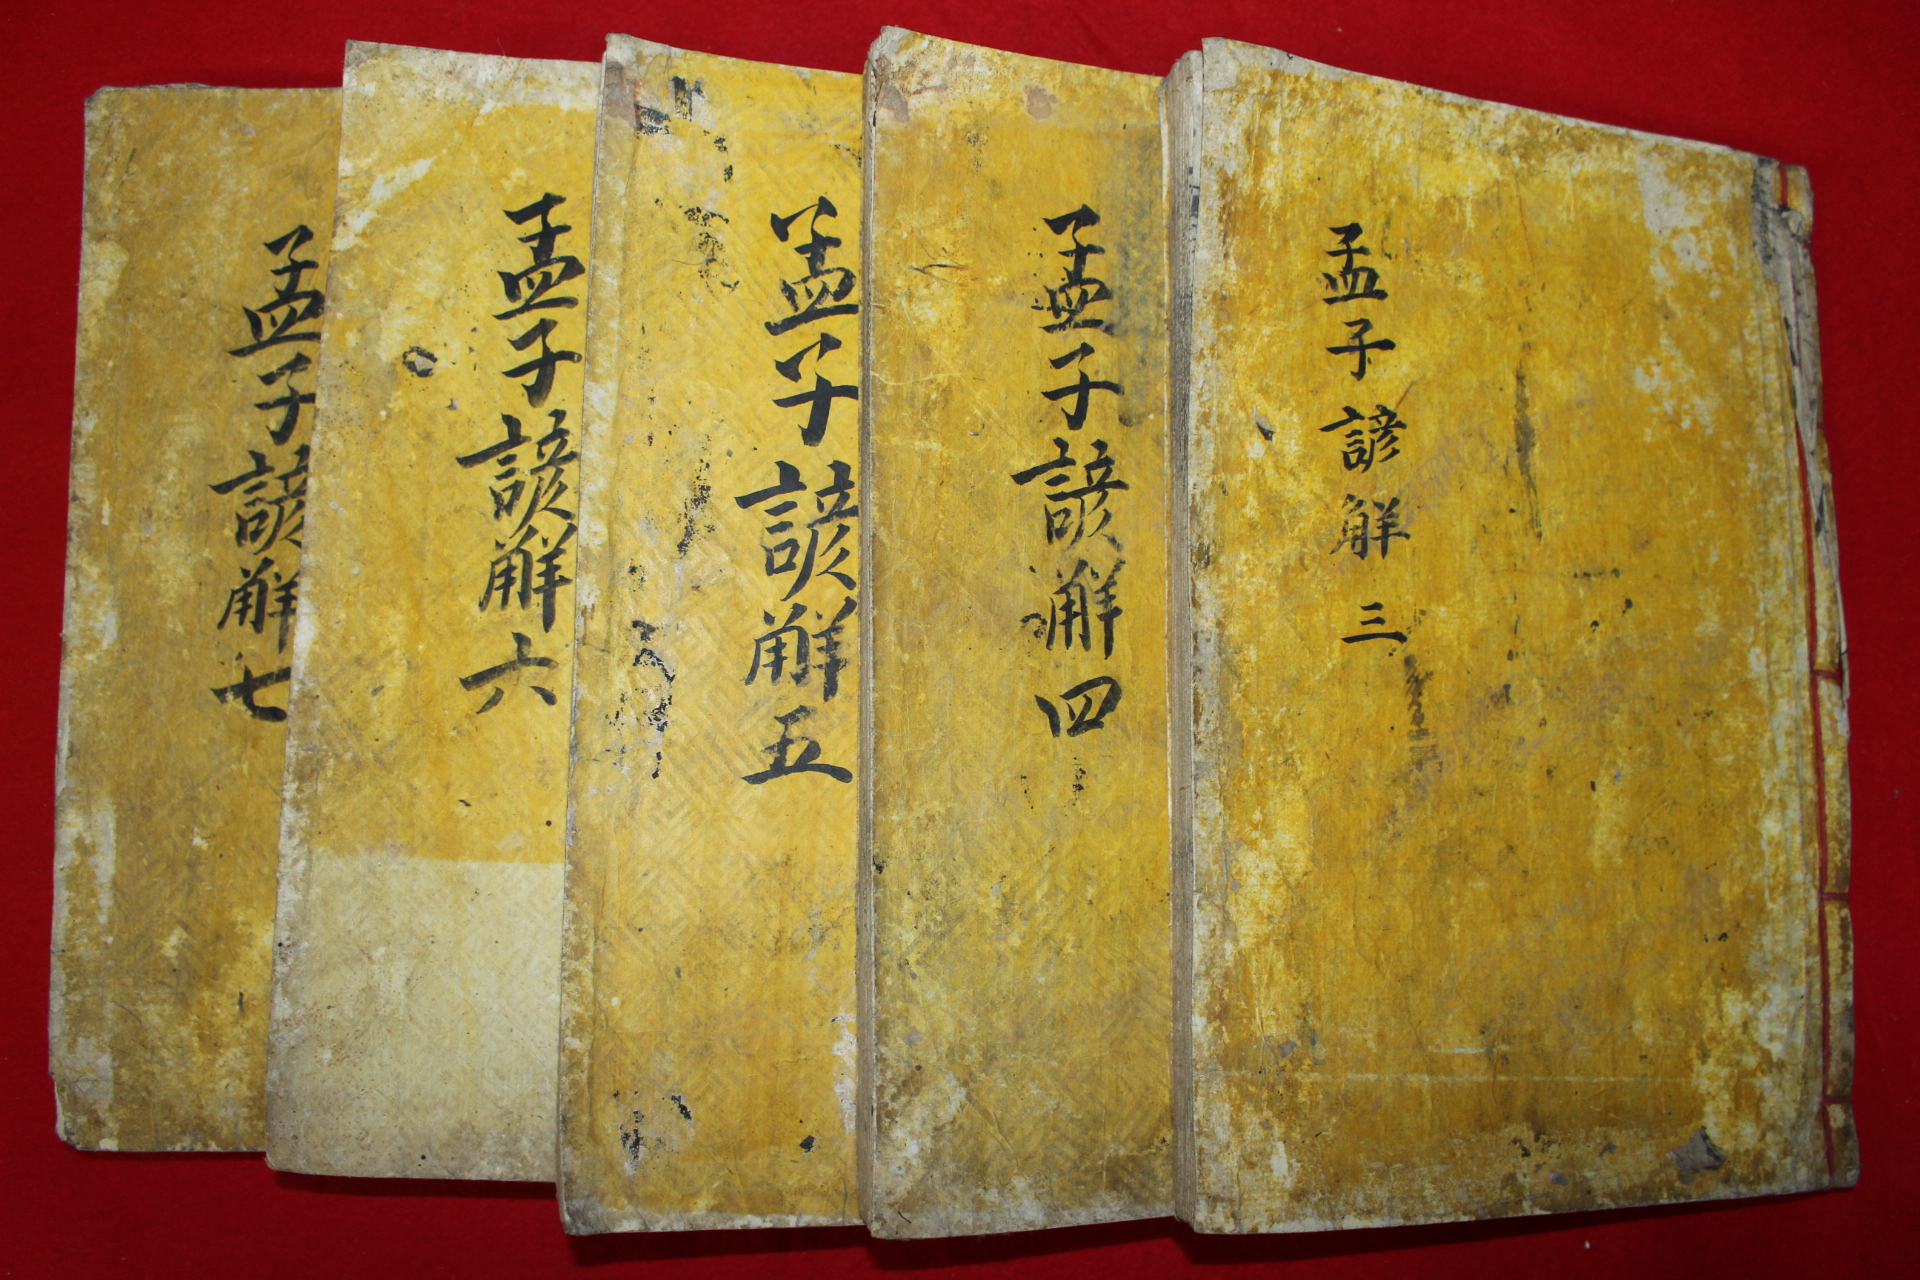 孟子諺解 三
孟子諺解 四
孟子諺解 五
孟子諺解 六
孟子諺解 七